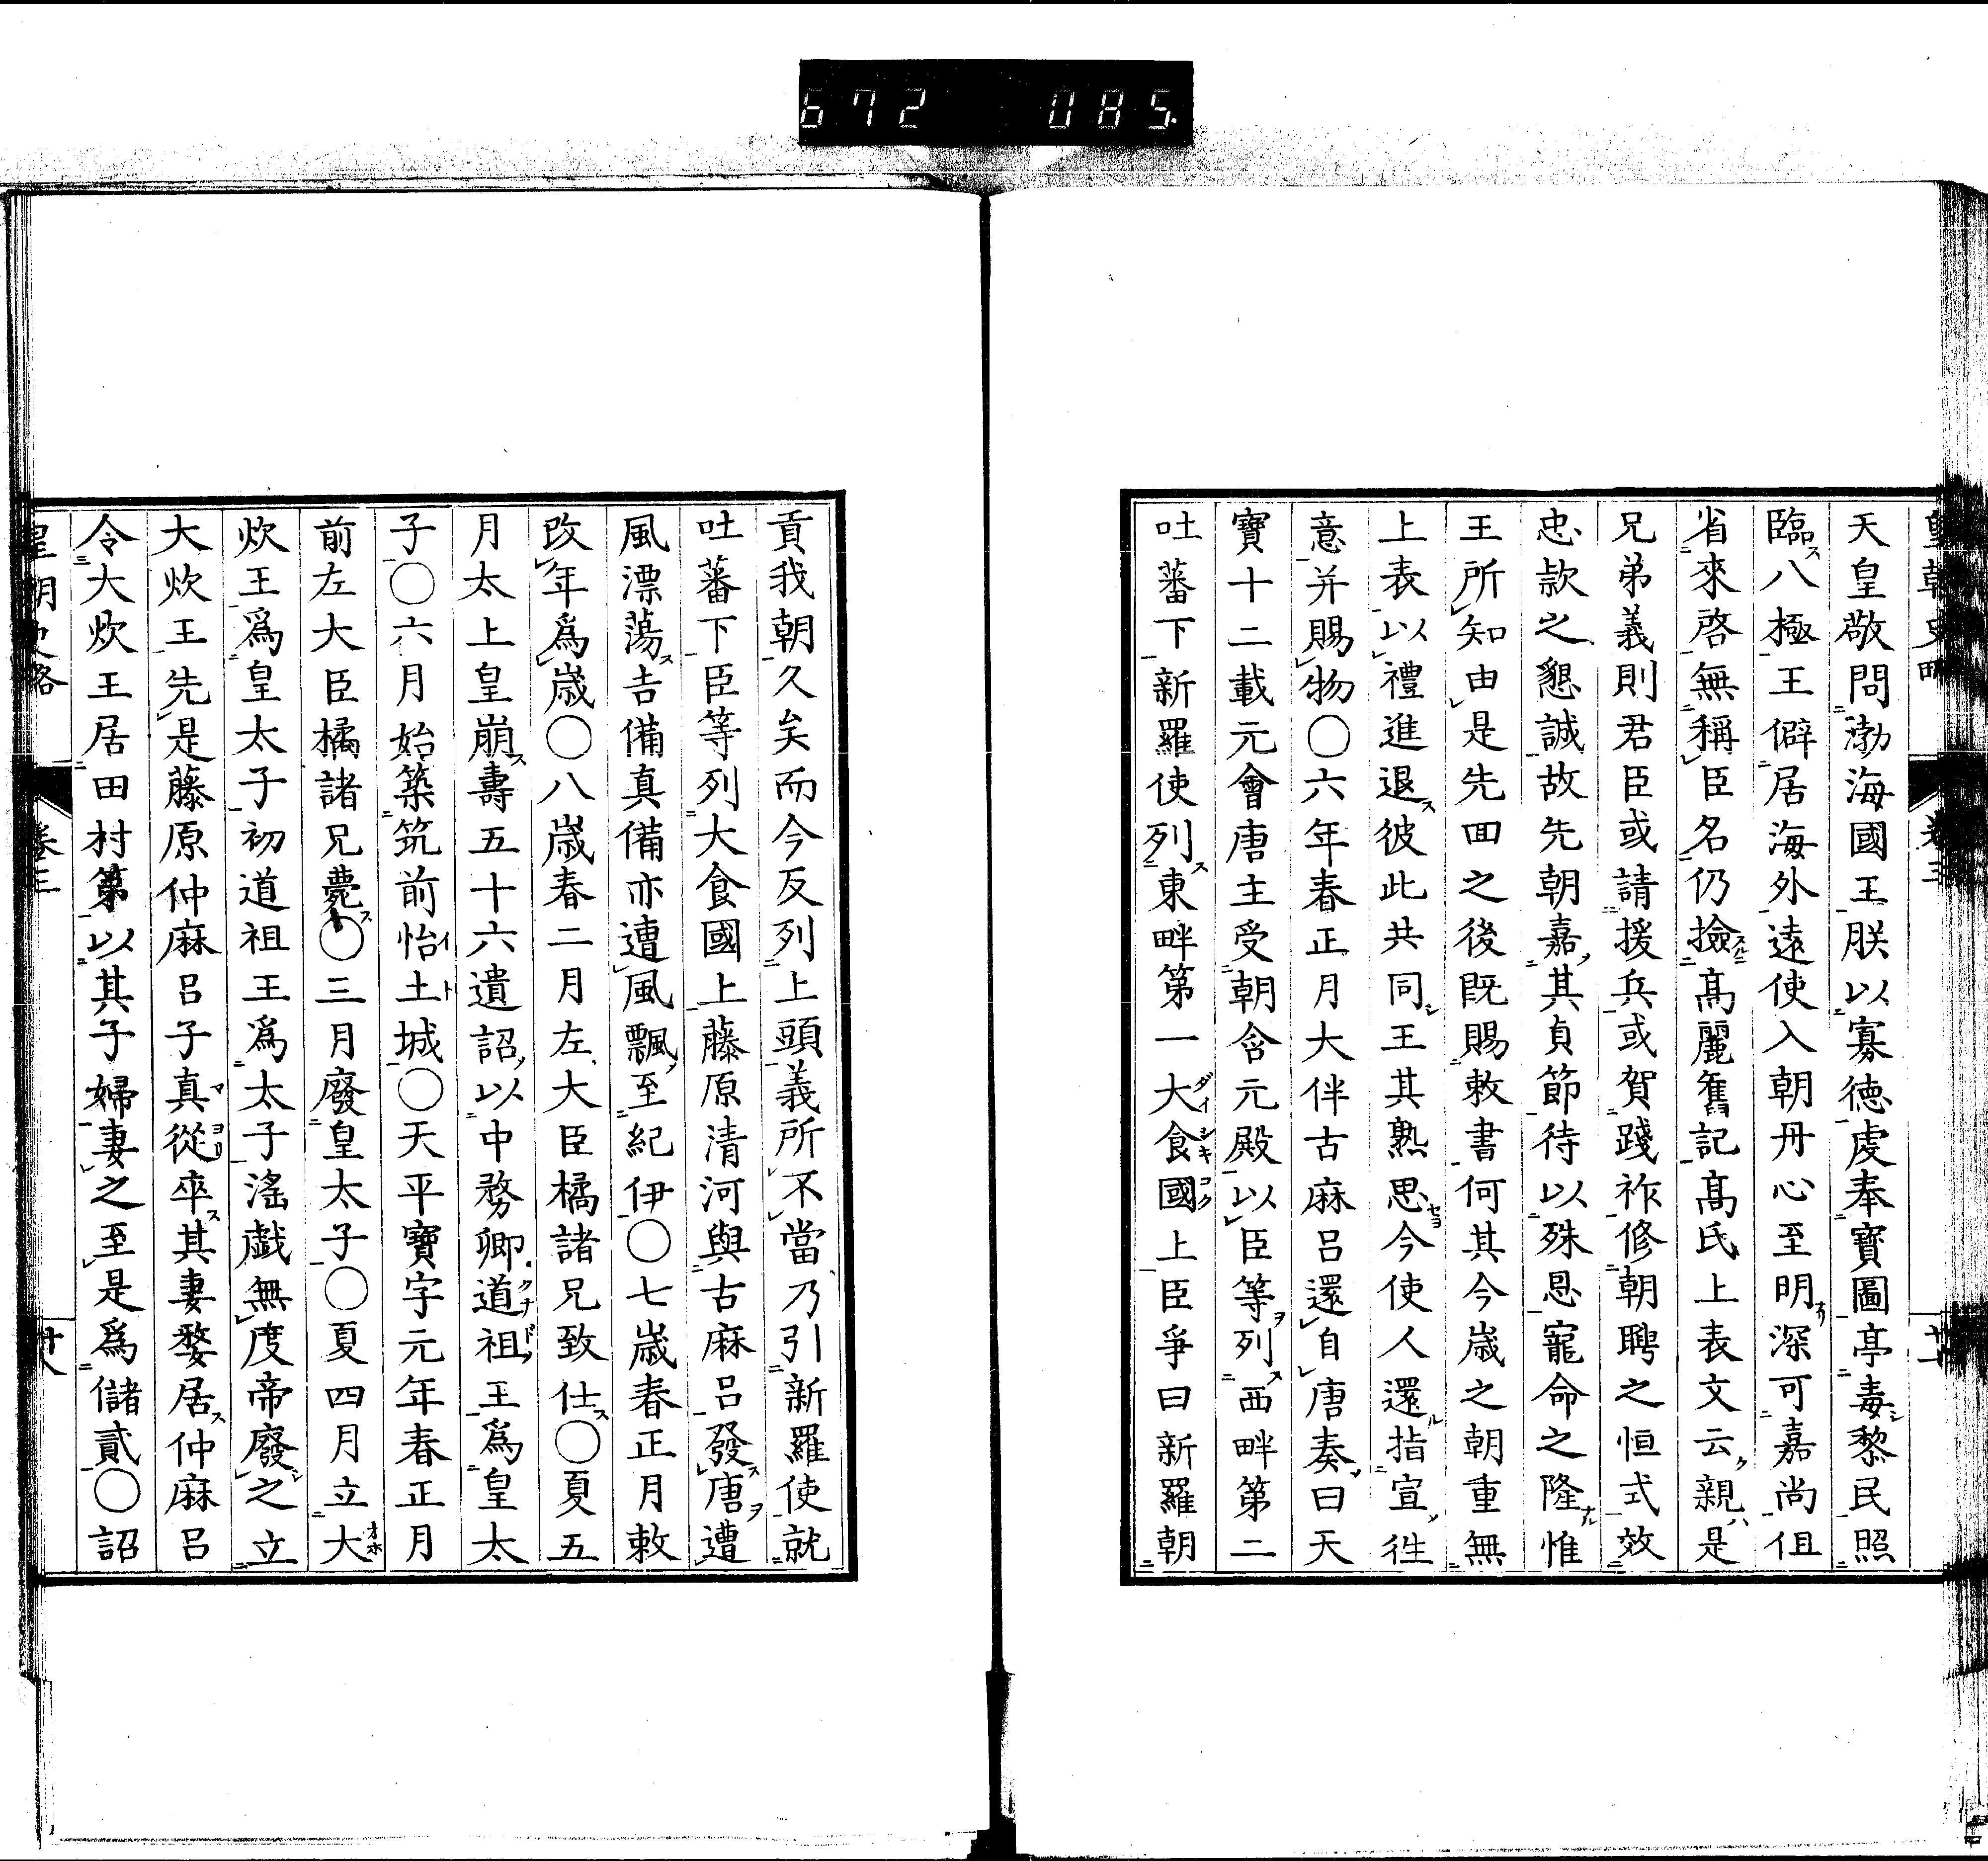 672 085
天皇敬問渤海國王朕以寡德虔奉寶圖亭毒黎民照
臨八極王僻居海外遠使入朝丹心至明深可嘉尚但
省來啓無稱臣名仍撿髙麗舊記髙氏上表文云親是
兄弟義則君臣或請援兵或賀踐祚修朝聘之恒式效
忠款之懇誠故先朝嘉其貞節待以殊恩寵命之隆惟
王所知由是先回之後既賜敕書何其今歳之朝重無
上表以禮進退彼此共同王其熟思今使人還指宣徃
意并賜物〇六年春正月大伴古麻呂還自唐奏曰天
寶十二載元會唐主受朝含元殿以臣等列西畔第二
吐蕃下新羅使列東畔第一大食國上臣爭曰新羅朝
貢我朝久矣而今反列上頭義所不當乃引新羅使就
吐蕃下臣等列大食國上藤原清河與古麻呂發唐遭
風漂蕩吉備真備亦遭風飄至紀伊〇七歳春正月敕
改年爲歳〇八歳春二月左大臣橘諸兄致仕〇夏五
月太上皇崩壽五十六遺詔以中務卿道祖王爲皇太
子〇六月始築筑前怡土城〇天平寶字元年春正月
前左大臣橘諸兄薨〇三月廢皇太子〇夏四月立大
炊王爲皇太子初道祖王爲太子滛戯無度帝廢之立
大炊王先是藤原仲麻呂子真從卒其妻婺居仲麻呂
令大炊王居田村第以其子婦妻之至是爲儲貳〇詔
皇朝史略 卷三